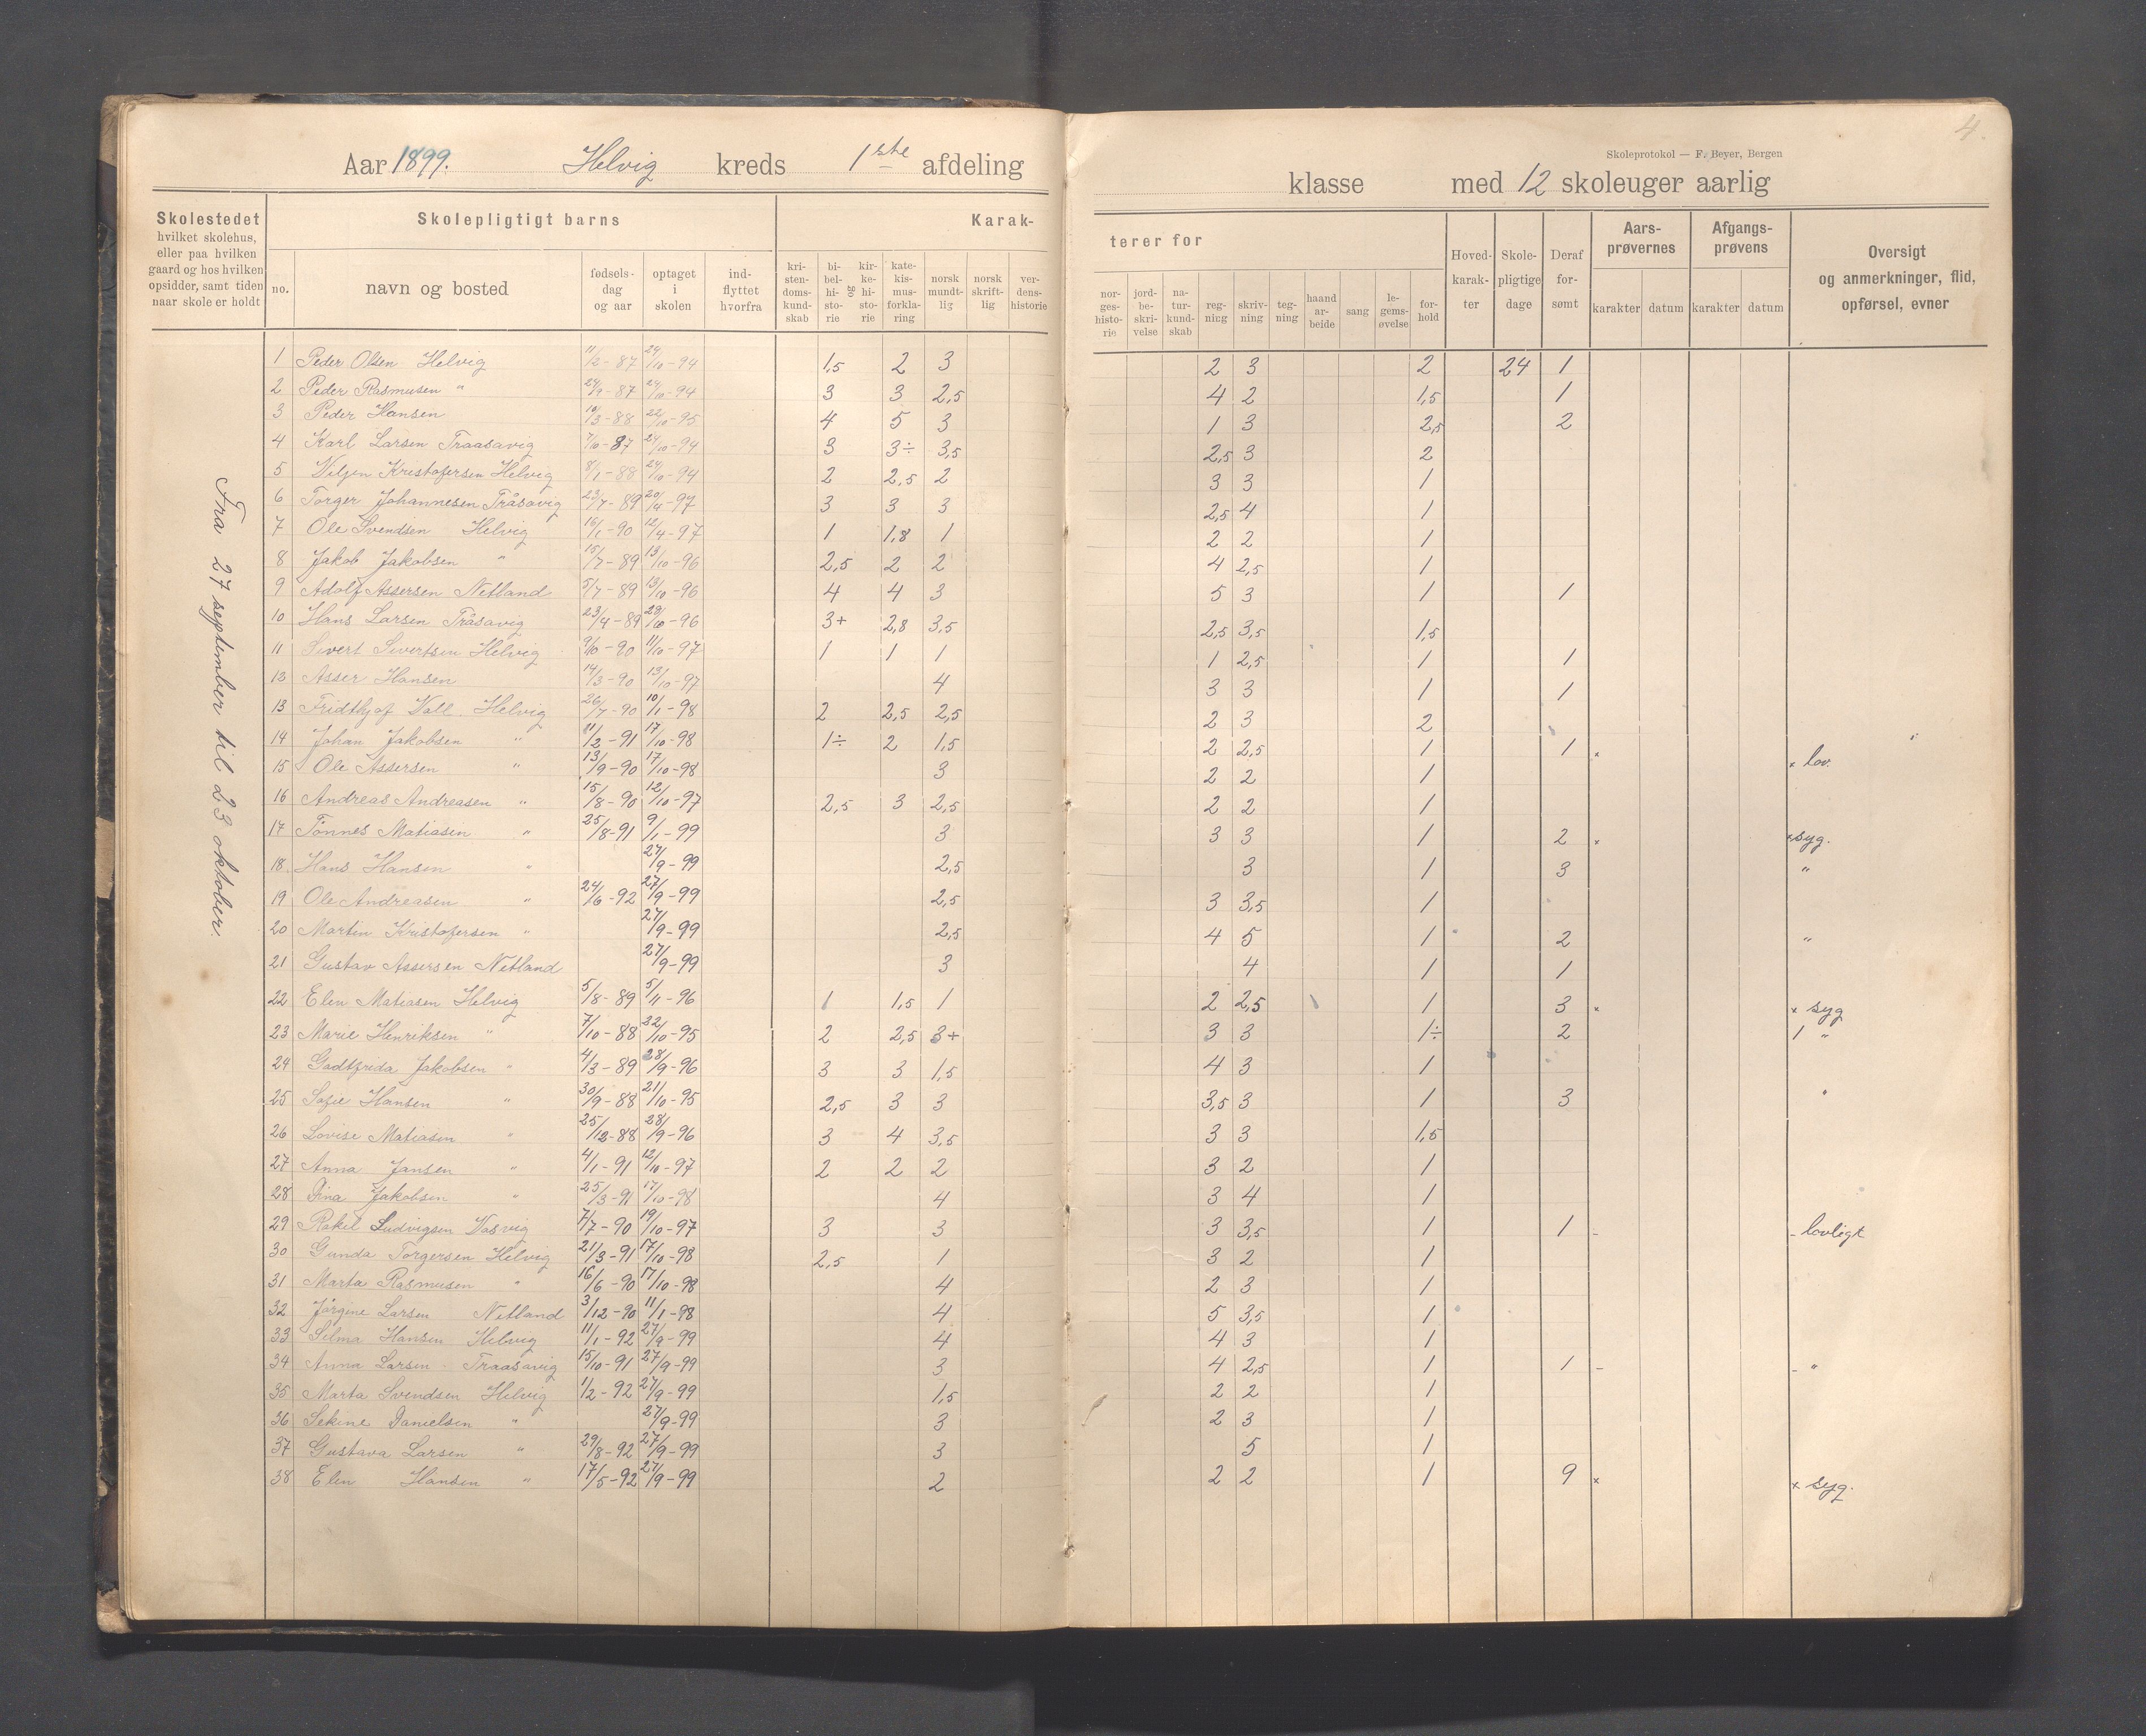 4.
Skoleprotokol — F. Beyer, Bergen
Aar 1899. Helvig kreds 1ste afdeling klasse med 12 skoleuger aarlig
Skolestedet hvilket skolehus, eller paa hvilken gaard og hos hvilken opsidder, samt tiden naar skole er holdt
Skolepligtigt barns
Karakterer for
no.
navn og bosted
fødselsdag og aar
optaget i skolen
indflyttet hvorfra
kristendomskundskab
bibelhistorie
og
kirkehistorie
katekismusforklaring
norsk mundtlig
norsk skriftlig
verdenshistorie
norgeshistorie
jordbeskrivelse
naturkundskab
regning
skrivning
tegning
haandarbeide
sang
legemsøvelse
forhold
Hovedkarakter
Skolepligtige dage
Deraf forsømt
Aarsprøvernes
karakter datum
Afgangsprøvens
karakter datum
Oversigt og anmerkninger, flid, opførsel, evner
Fra 27 september til 23 oktober.
1 Peder Olsen Helvig 11/2-87 24/10-94 1,5 2 3 2 3 2 24 1
2 Peder Rasmusen " 24/9-87 24/10-94 3 3 2,5 4 2 1,5 1
3 Peder Hansen 10/3-88 22/10-95 4 5 3 1 3 2,5 2
4 Karl Larsen Traasavig 7/10-87 24/10-94 3 3÷ 3,5 2,5 3 2
5 Viljen Kristofersen Helvig 8/1-88 24/10-94 2 2,5 2 3 3 1
6 Torger Johannesen Tråsavig 23/7-89 20/4-97 3 3 3 2,5 4 1
7 Ole Svendsen Helvig 16/1-90 12/4-97 1 1,8 1 2 2 1
8 Jakob Jakobsen " 15/7-89 13/10-96 2,5 2 2 4 2,5 1
9 Adolf Assersen Netland 5/7-89 13/10-96 4 4 3 5 3 1 1
10 Hans Larsen Tråsavig 23/4-89 29/10-96 3+ 2,8 3,5 2,5 3,5 1,5
11 Sivert Sivertsen Helvig 9/10-90 11/10-97 1 1 1 1 2,5 1 1
12 Asser Hansen 14/3-90 13/10-97 4 3 3 1 1
13 Fridthjof Vall. Helvig 26/7-90 10/1-98 2 2,5 2,5 2 3 2
14 Johan Jakobsen " 11/2-91 17/10-98 1÷ 2 1,5 2 2,5 1 1 × × lov.
15 Ole Assersen " 13/9-90 17/10-98 3 2 2 1
16 Andreas Andreasen " 15/8-90 12/10-97 2,5 3 2,5 2 2 1
17 Tönnes Matiasen " 25/8-91 9/1-99 3 3 3 1 2 × × syg.
18 Hans Hansen " 27/9-99 2,5 3 1 3 "
19 Ole Andreasen " 24/6-92 27/9-99 2,5 3 3,5 1
20 Martin Kristofersen " 27/9-99 2,5 4 5 1 2 "
21 Gustav Assersen Netland 27/9-99 3 4 1 1
22 Elen Matiasen Helvig 5/8-89 5/11-96 1 1,5 1 2 2,5 1 3 × × syg
23 Marie Henriksen " 7/10-88 22/10-95 2 2,5 3+ 3 3 1÷ 2 1 "
24 Godtfrida Jakobsen " 4/3-89 28/9-96 3 3 1,5 4 3 1
25 Sofie Hansen " 30/9-88 21/10-95 2,5 3 3 3,5 3 1 3 "
26 Lovise Matiasen " 25/12-88 28/9-96 3 4 3,5 3 3 1,5
27 Anna Jansen " 4/1-91 12/10-97 2 2 2 3 2 1
28 Dina Jakobsen " 25/3-91 17/10-98 4 3 4 1
29 Rakel Ludvigsen Vasvig 7/7-90 19/10-97 3 3 3 3,5 1 1 - - lovligt
30 Gunda Torgersen Helvig 21/3-91 17/10-98 2,5 1 3 2 1
31 Marta Rasmusen " 16/6-90 17/10-98 4 2 3 1
32 Jörgine Larsen Netland 3/12-90 11/1-98 4 5 3,5 1
33 Selma Hansen Helvig 11/1-92 27/9-99 4 4 3 1
34 Anna Larsen Traasavig 15/10-91 27/9-99 3 4 2,5 1 1 - - "
35 Marta Svendsen Helvig 1/2-92 27/9-99 1,5 2 2 1
36 Sekine Danielsen " 27/9-99 3 2 3 1
37 Gustava Larsen " 29/8-92 27/9-99 3 5 1
38 Elen Hansen " 17/5-92 27/9-99 2 2 2 1 9 × × syg.